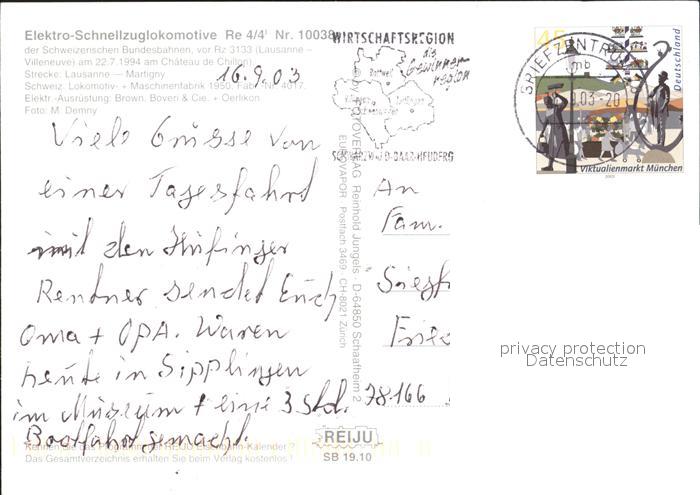 Elektro-Schnellzuglokomotive Re 4/4ᴵ Nr. 10038
der Schweizerischen Bundesbahnen, vor Rz 3133 (Lausanne –
Villeneuve) am 22.7.1994 am Château de Chillon
Strecke: Lausanne — Martigny
Schweiz. Lokomotiv- + Maschinenfabrik 1950, Fabr. Nr. 4017.
Elektr.-Ausrüstung: Brown, Boveri & Cie. + Oerlikon
Foto: M. Demny
16.9.03
Viele Grüsse von
einer Tagesfahrt
mit den Hüfinger
Rentner sendet Euch
Oma + OPA. Waren
heute in Sipplingen
im Museum + eine 3 Std.
Bootfahrt gemacht.
Kennen Sie das Programm der REIJU Eisenbahn-Kalender?
Das Gesamtverzeichnis erhalten Sie beim Verlag kostenlos!
REIJU
SB 19.10
FOTOVERLAG Reinhold Jungels · D-64850 Schaafheim 2
EUROVAPOR Postfach 3469 · CH-8021 Zürich
WIRTSCHAFTSREGION
die
Gewinner
region
Rottweil
Tuttlingen
SCHWARZWALD-BAAR-HEUBERG
BRIEFZENTRUM
mb
.03-20
45
Deutschland
Viktualienmarkt München
2003
An
Fam.
Siegf
Frie
78166
privacy protection
Datenschutz